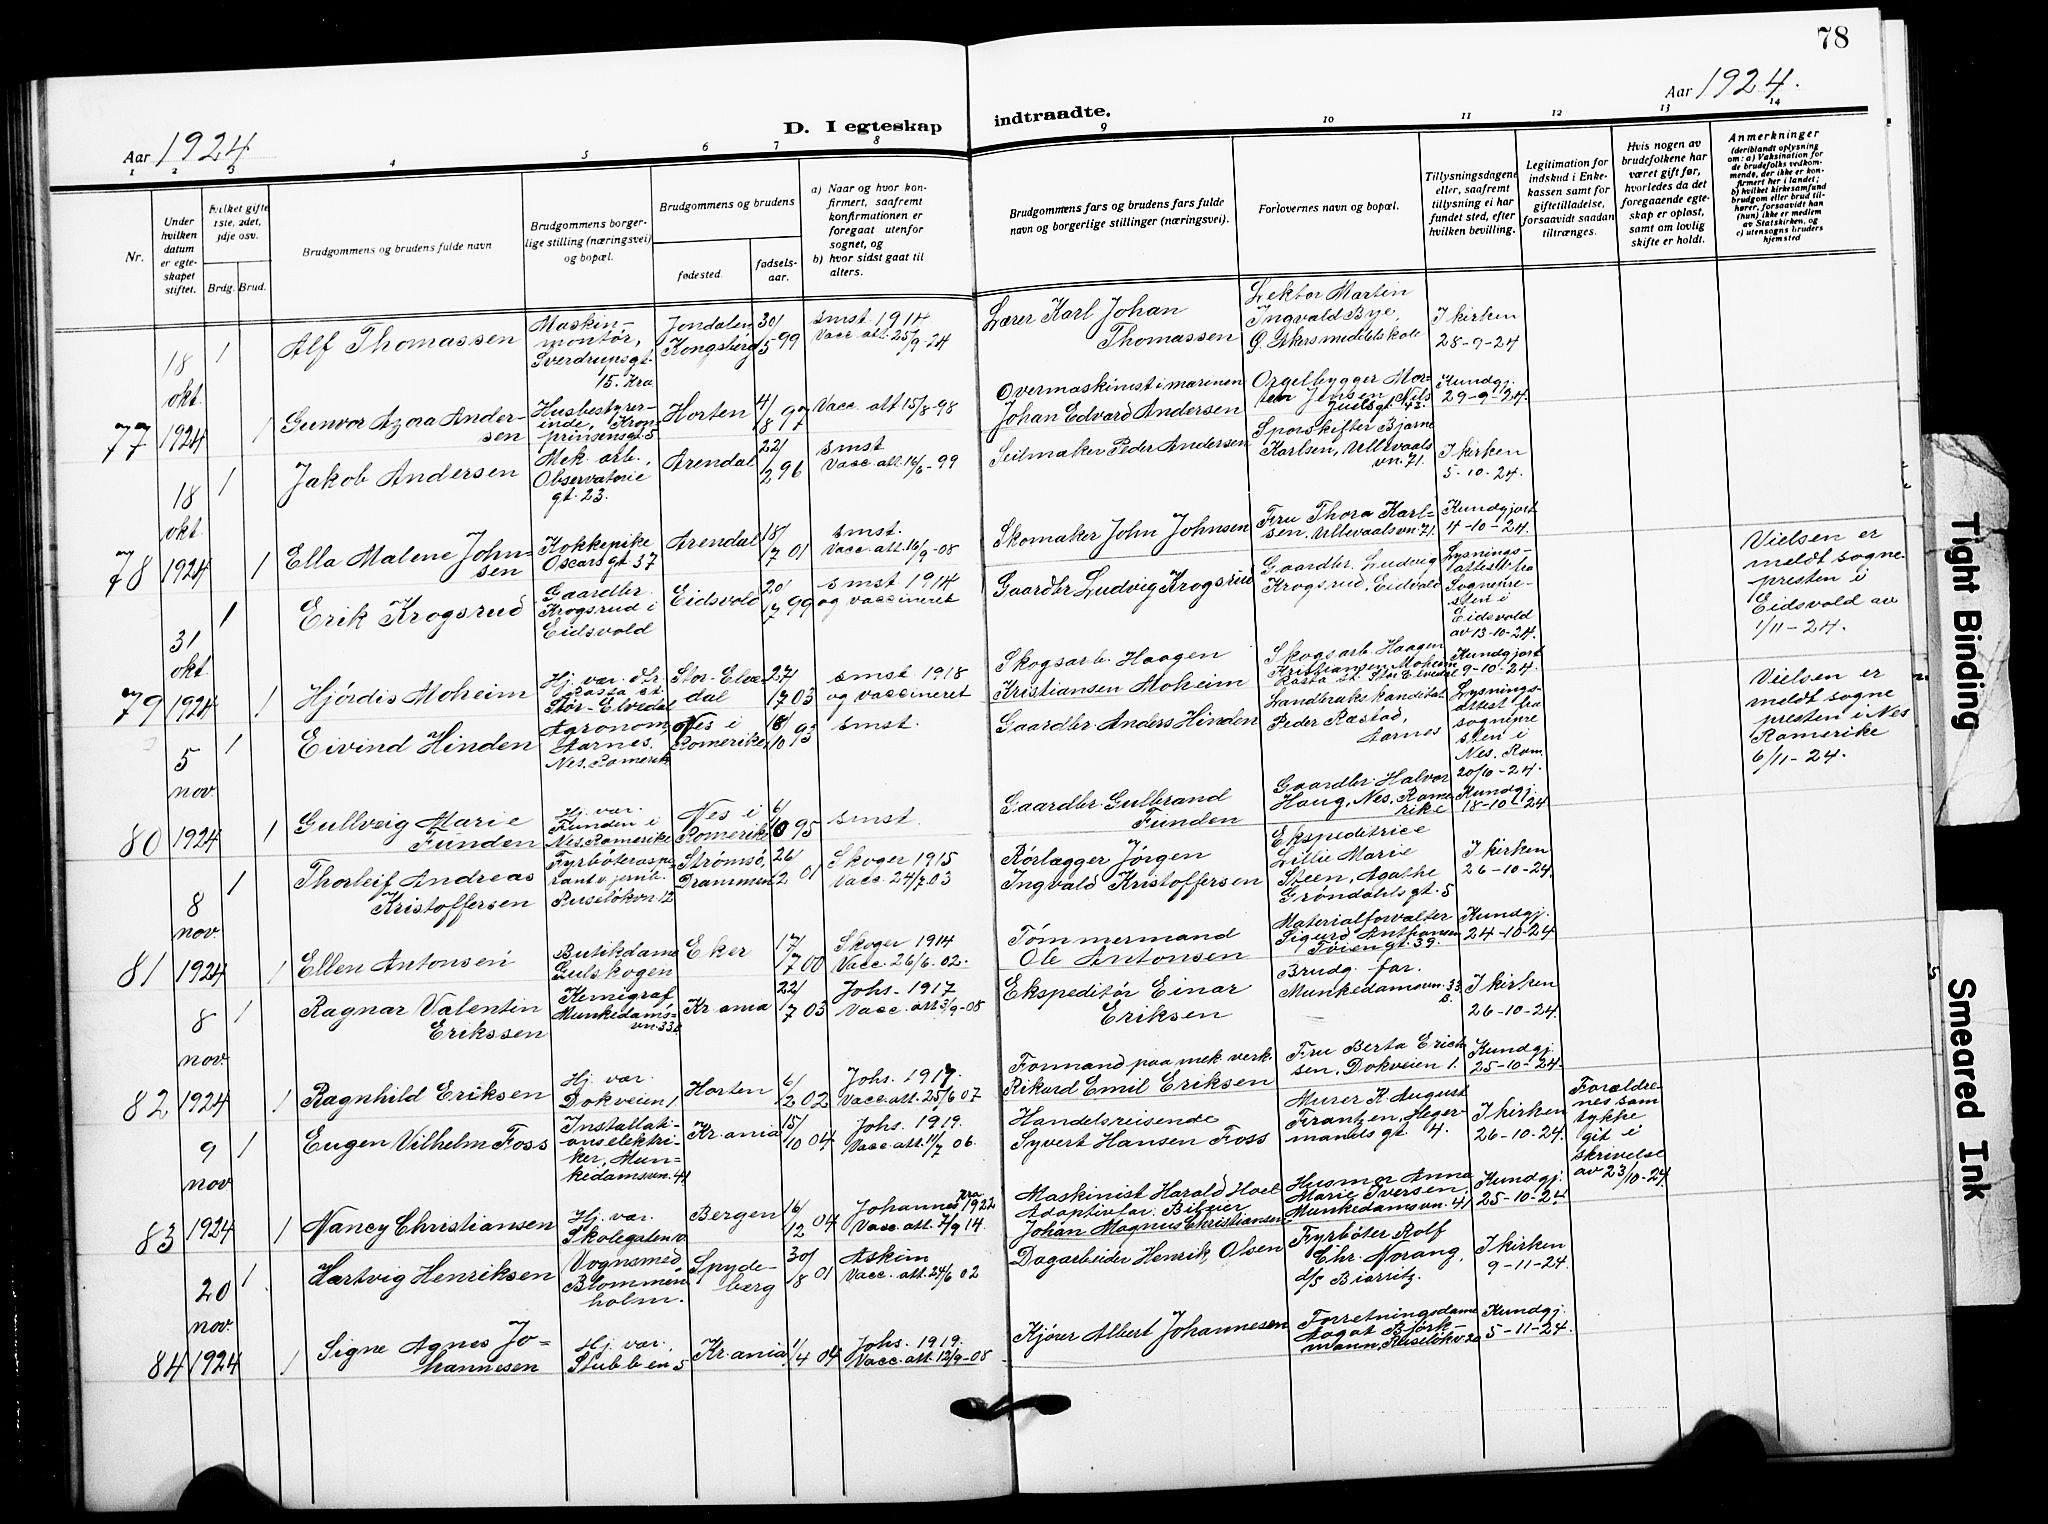 78
Aar 1924
D. I egteskap indtraadte.
Aar 1924.
1 2 3 4 5 6 7 8 9 10 11 12 13 14
Nr.
Under hvilken datum er egteskapet stiftet.
hvilket gifte 1ste, 2det, 3dje osv.
Brdg. Brud.
Brudgommens og brudens fulde navn
Brudgommens borgerlige stilling (næringsvei) og bopæl.
Brudgommens og brudens
fødested.
fødselsaar.
a) Naar og hvor konfirmert, saafremt konfirmationen er foregaat utenfor sognet, og
b) hvor sidst gaat til alters.
Brudgommens fars og brudens fars fulde navn og borgerlige stillinger (næringsvei).
Forlovernes navn og bopæl.
Tillysningsdagene eller, saafremt tillysning ei har fundet sted, efter hvilken bevilling.
Legitimation for indskud i Enkekassen samt for giftetilladelse, forsaavidt saadan tiltrænges.
Hvis nogen av brudefolkene har været gift før, hvorledes da det foregaaende egteskap er opløst, samt om lovlig skifte er holdt.
Anmerkninger
(deriblandt oplysning om: a) Vaksination for de brudefolks vedkommende, der ikke er konfirmert her i landet; b) hvilket kirkesamfund brudgom eller brud tilhører, forsaavidt han (hun) ikke er medlem av Statskirken, og c) utensogns bruders hjemsted
77
18 okt. 1924
1
Alf Thomassen
Maskinmontør, Sverdrupsgt. 15. Kra
Jondalen Kongsberg
30/5 99
smst. 1914
Vacc. att. 25/9-24
Lærer Karl Johan Thomassen
Lektor Martin Ingvald Bye, Ø. Akers middelskole
I kirken 28-9-24
1
Gunvor Azora Andersen
Husbestyrerinde, Kronprinsensgt. 5
Horten
4/8 97
Vacc. att 15/8-98
Overmaskinist i marinen Johan Edvard Andersen
Orgelbygger Morten Jensen Nils Juelsgt. 43.
Kundgj. 29-9-24.
78
18 okt. 1924
1
Jakob Andersen
Mek. arb., Observatorie gt. 23.
Arendal
22/2 96
smst
Vacc. att. 16/6-99
Seilmaker Peder Andersen
Sporskifter Bjarne Karlsen, Ullevaalsvn. 71.
I kirken 5-10-24.
1
Ella Malene Johnsen
Kokkepike Oscarsgt 37
Arendal
18/7 01
smst.
Vacc. att. 16/9-08
Skomaker John Johnsen
Fru Thora Karlsen, Ullevaalsvn. 71.
Kundgjort 4-10-24.
79
31 okt. 1924
1
Erik Krogsrud
Gaardbr. Krogsrud i Eidsvold
Eidsvold
20/7 99
smst 1914
og vaccineret
Gaardbr Ludvig Krogsrud
Gaardbr. Ludvig Krogsrud, Eidsvold
Lysningsattest fra Sognepresten i Eidsvold av 13-10-24.
Vielsen er meldt sognepresten i Eidsvold av 1/11-24.
1
Hjørdis Moheim
Hj. var. dtr. Rasta st. Stor-Elvedal
Stor-Elvedal
27/7 03
smst 1918
og vaccineret
Skogsarb. Haagen Kristiansen Moheim
Skogsarb. Haagen Kristiansen Moheim Rasta st. Stor Elvedal
Kundgjort 9-10-24.
80
5 nov. 1924
1
Eivind Hinden
Agronom, Aarnes, Nes, Romerik
Nes i Romerike
18/10 93
smst.
Gaardbr Anders Hinden
Landbrukskandidat Peder Rastad, Aarnes
Lysningsattest fra sognepresten i Nes. Rom. 20/10-24.
Vielsen er meldt sognepresten i Nes Romerike 6/11-24.
1
Gullveig Marie Funden
Hj. var. Funden i Nes. Romerike
Nes i Romerike
6/10 95
smst.
Gaardbr. Gulbrand Funden
Gaardbr. Halvor Haug, Nes, Romerike
Kundgj. 18-10-24
81
8 nov. 1924
1
Thorleif Andreas Kristoffersen
Fyrbøteraspirant v. jernb. Ruseløkvn. 12
Strømsø, Drammen
26/2 01
Skoger 1915
Vacc. 24/7.03
Rørlægger Jørgen Ingvald Kristoffersen
Ekspeditrice Lillie Marie Steen, Agathe Grøndahlsgt. 5
I kirken 26-10-24.
1
Ellen Antonsen
Butikdame Gulskogen
Eker
17/7 00
Skoger 1914
Vacc. 26/6.02.
Tømmermand Ole Antonsen
Materialforvalter Sigurd Anthonsen Tøiengt. 39.
Kundgj. 24-10-24
82
8 nov. 1924
1
Ragnar Valentin Erikssen
Kemigraf, Munkedamsvn. 33 B
Kr.ania
22/7 03
Johs. 1917
Vacc. att 3/9-08
Ekspeditør Einar Eriksen
Brudg. far. Munkedamsvn. 33 B.
I kirken 26-10-24.
1
Ragnhild Eriksen
Hj. var. Dokveien 1
Horten
6/2 02
Johs. 1917.
Vacc. att. 25/6 07
Formand paa mek. verk. Rikard Emil Eriksen
Fru Berta Ericksen, Dokveien 1.
Kundgj. 25-10-24.
83
9 nov 1924
1
Eugen Vilhelm Foss
Installationselektriker, Munkedamsvn. 41
Kr.ania
15/10 04
Johs. 1919.
Vacc. att. 11/7 06.
Handelsreisende Syvert Hansen Foss
Murer K August Frantzen, Hegermandsgt. 4.
I kirken 26-10-24.
Forældrenes samtykke git i skrivelse av 23/10-24.
1
Nancy Christiansen
Hj. var. Skolegaten
Bergen
16/12 04
Johannes 1922
Vacc. att. 7/9 14.
Maskinist Harald Hoel
Adoptivfar. Johan Magnus Christiansen
Husmor Anna Marie Iversen, Munkedamsvn. 41
Kundgj. 25-10-24
84
20 nov. 1924
1.
Hartvig Henriksen
Vognsmed Blommenholm.
Spydeberg
30/8 01
Askim
Vacc. att. 24/6 02
Dagarbeider Henrik Olsen
Fyrbøter Rolf Chr. Norang, d/s Biarritz.
I kirken 9-11-24.
1
Signe Agnes Johannesen
Hj. var. Stubben 5
Kr.ania
1/4 04
Johs. 1919.
Vacc. att. 12/9-08
Kjører Albert Johannesen
Forretningsdame Aagot Bjørkmann, Ruseløkv. 20
Kundgj. 5-11-24.
Tight Binding
Smeared Ink